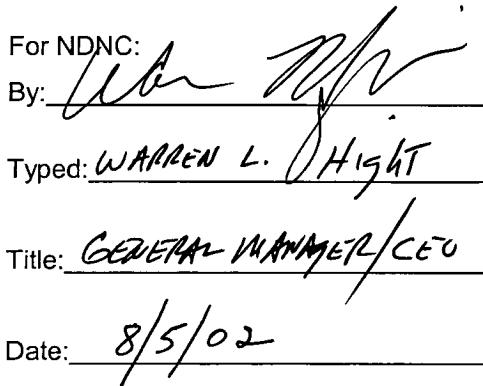 For NDNC:
By:
Typed: WARREN L. HIghT
Title: GENERAL MANAGER/CEO
Date: 8/5/02